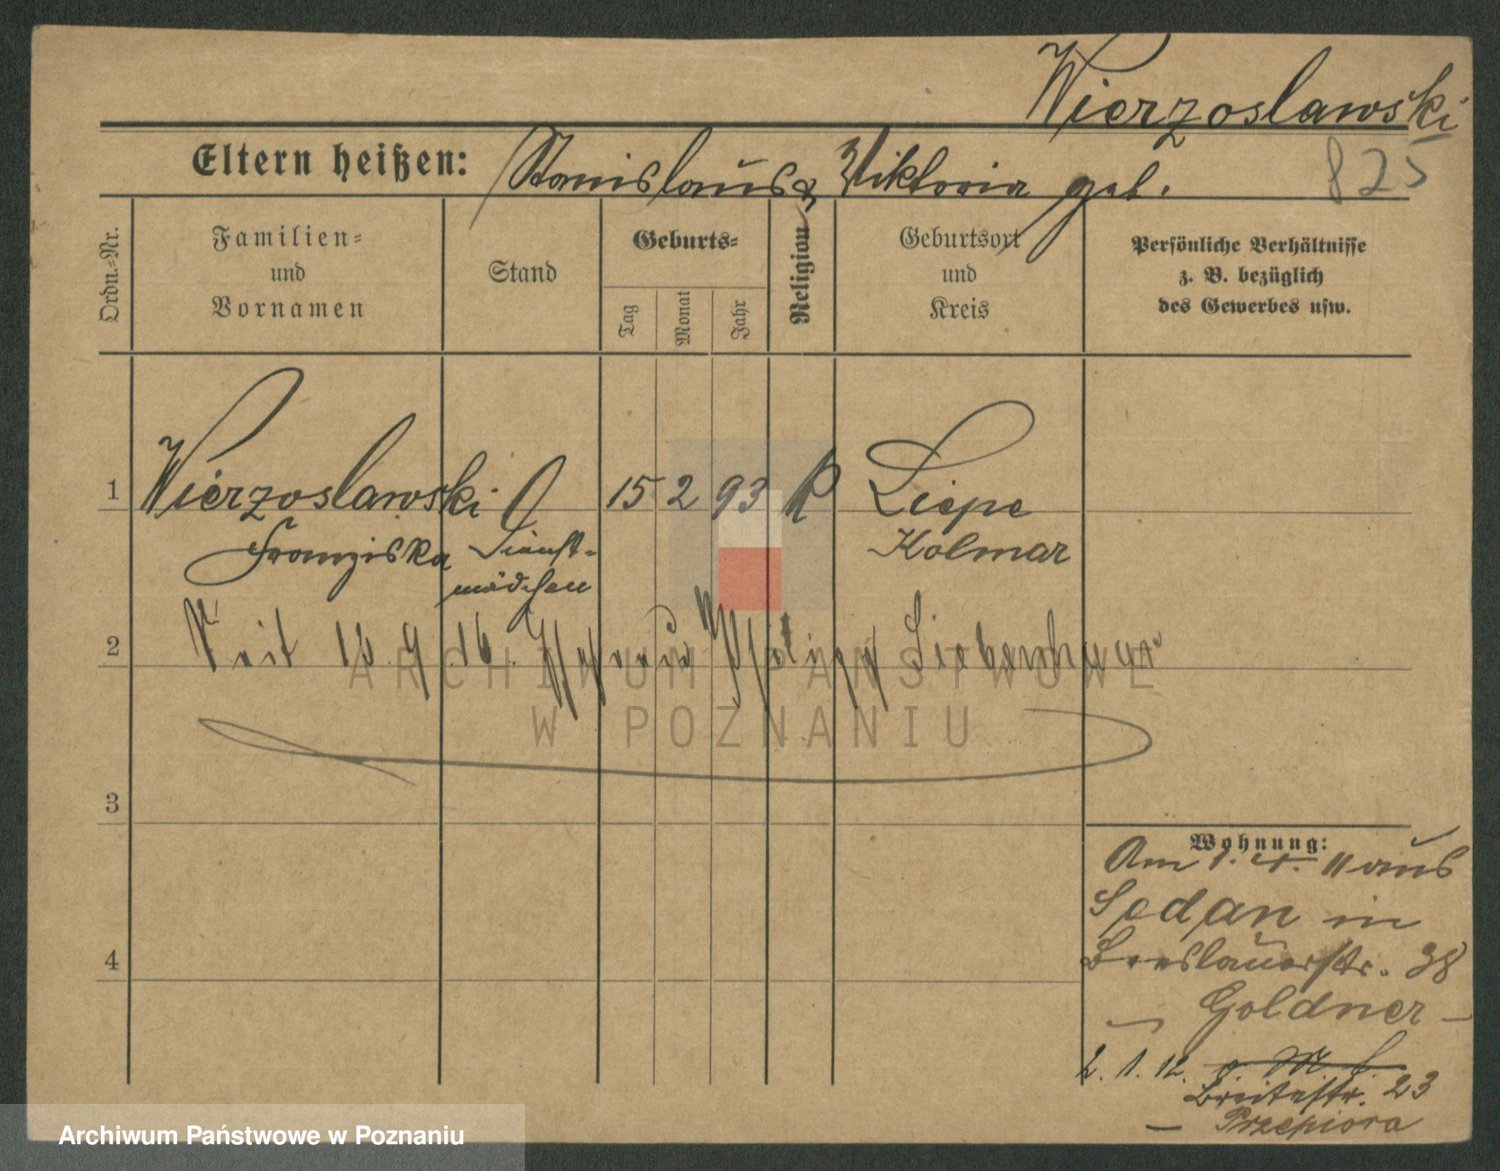 Wierzoslawski
825
Eltern heißen: Stanislaus & Viktoria geb.
Ordn.=Nr.
Familien=
und
Vornamen
Stand
Geburts=
Tag
Monat
Jahr
Religion
Geburtsort
und
Kreis
Persönliche Verhältnisse
z. B. bezüglich
des Gewerbes usw.
1 Wierzoslawski 15 2 93 k Liepe
Franziska Dienst- Kolmar
mädchen
2 Seit 12.9.16. Ehefrau Philipp
ARCHIWUM PAŃSTWOWE
W POZNANIU
3
4
Wohnung:
Am 1. 4. 11 aus
Sedan in
Breslauerstr. 38
– Goldner –
2. 1. 12.
Breitestr. 23
– Przepiora
Archiwum Państwowe w Poznaniu